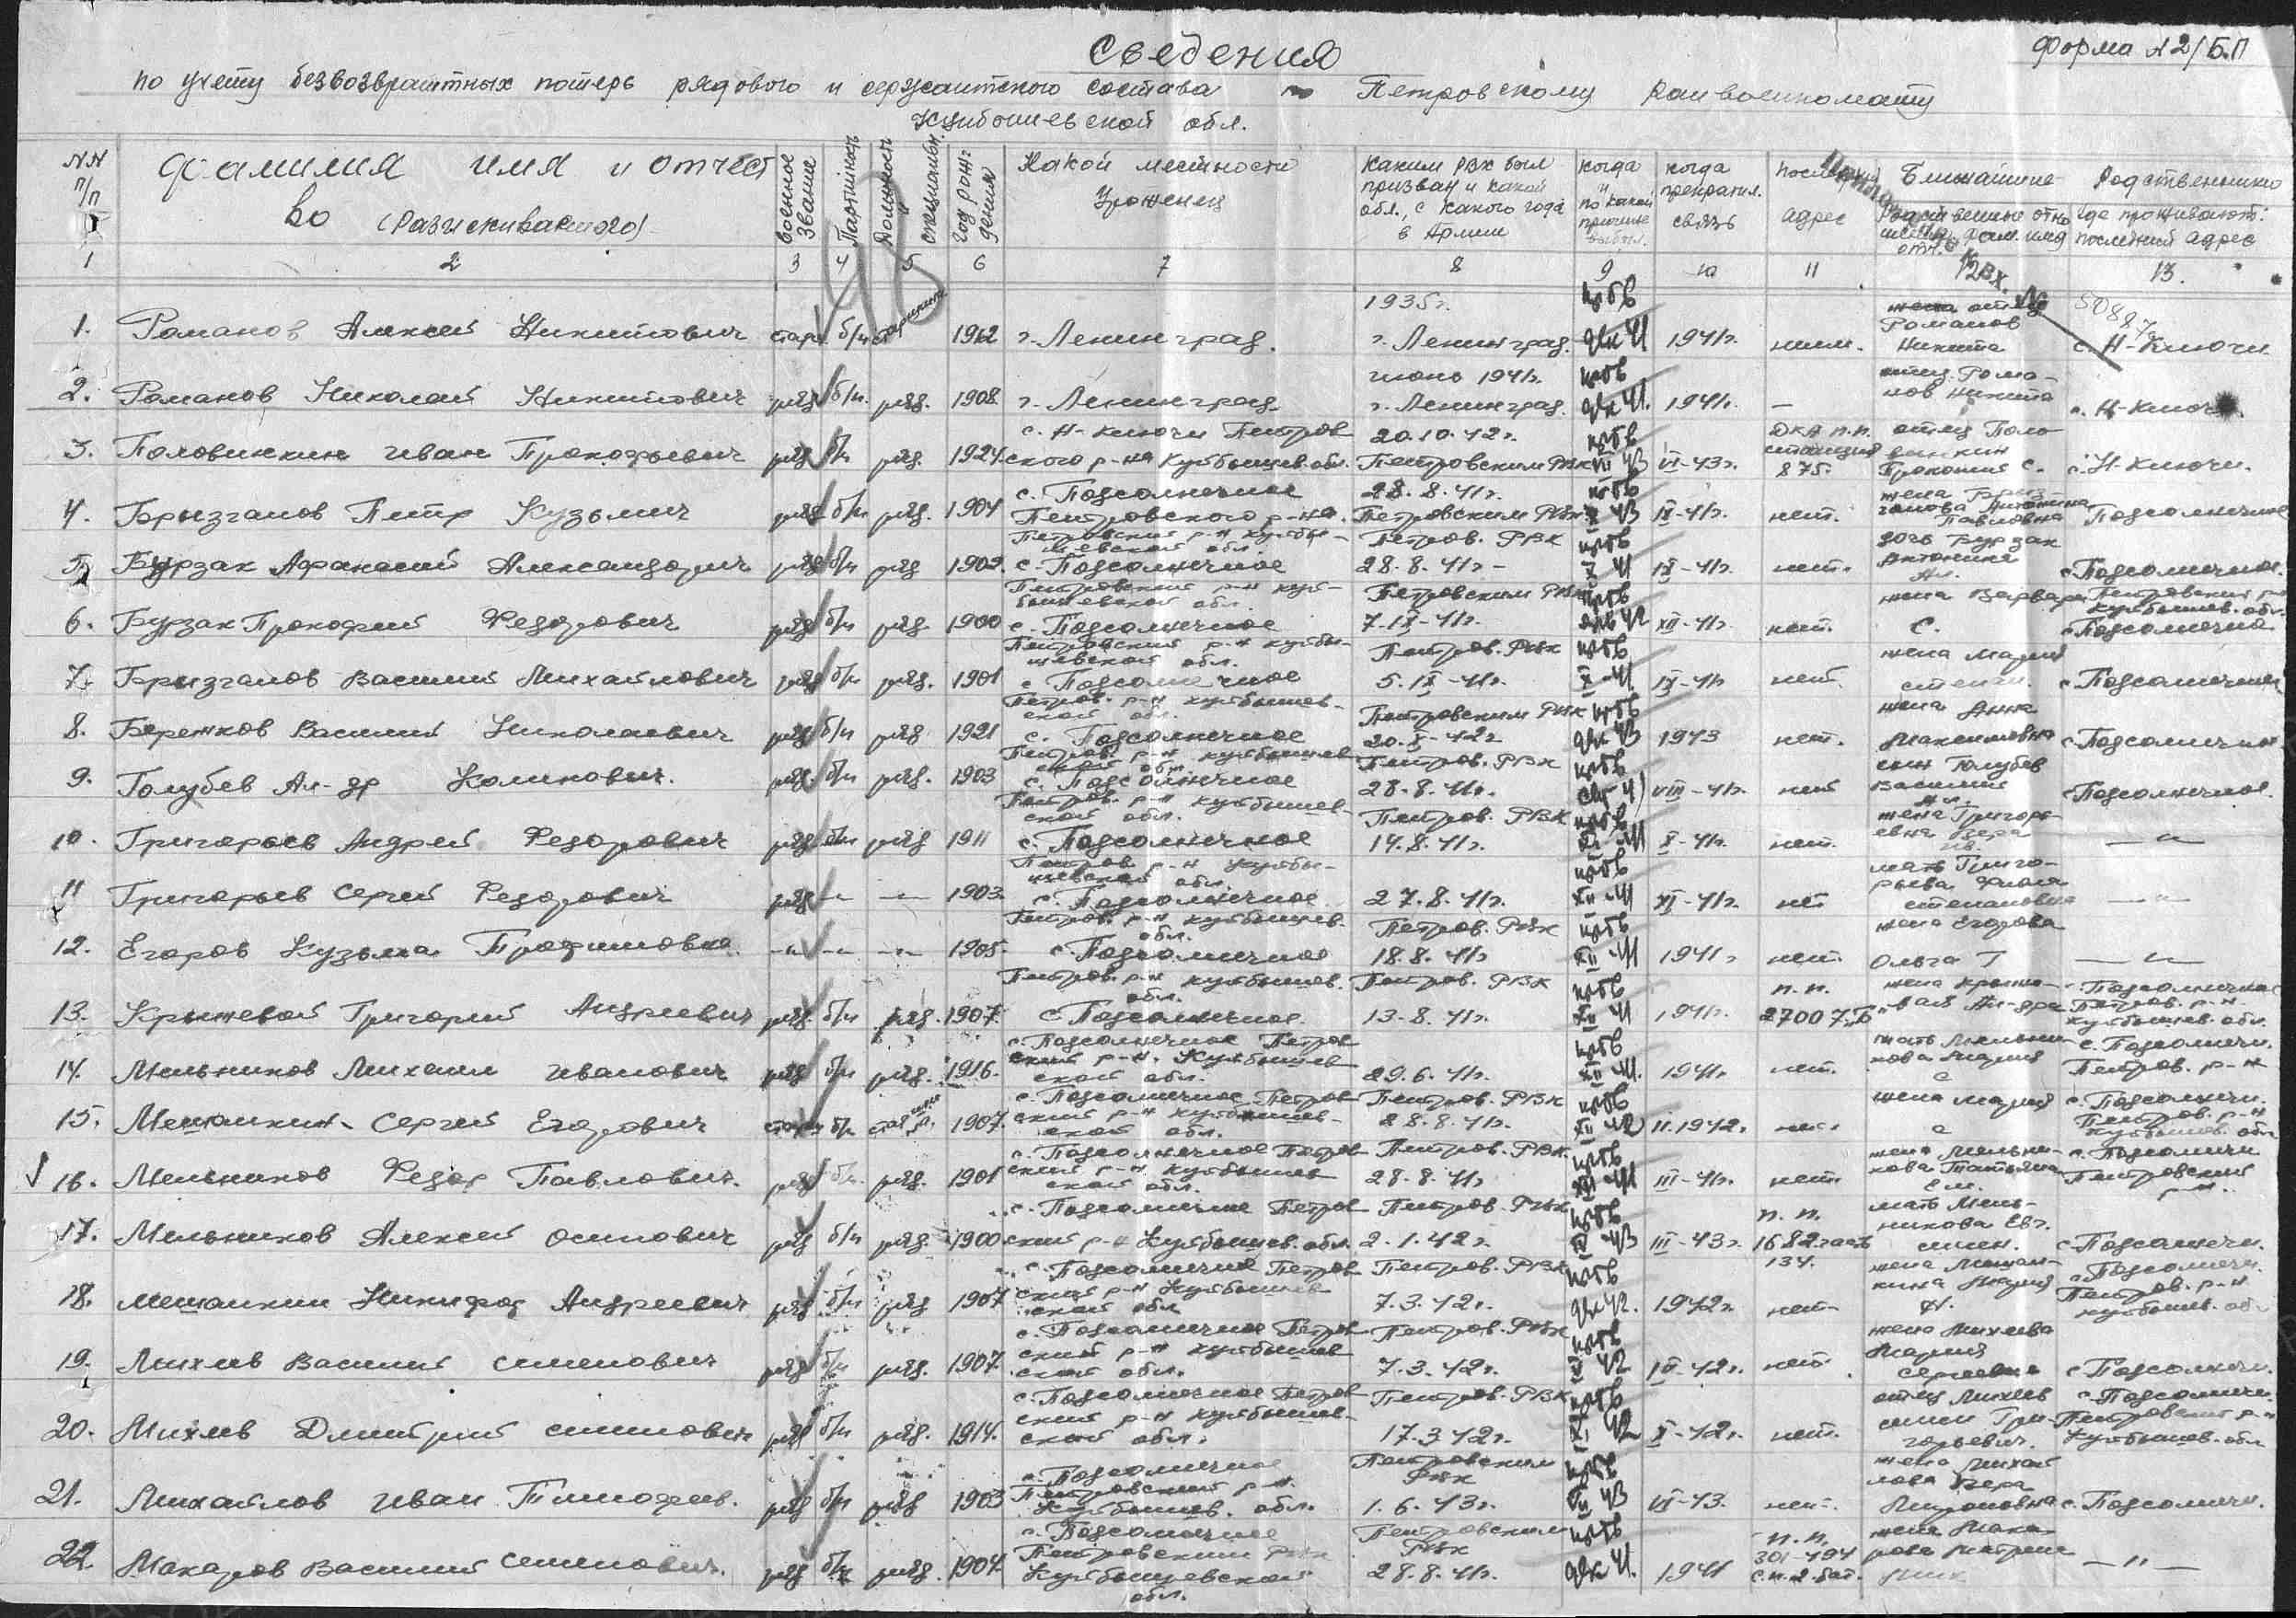 Форма №2/Б.П
Сведения
по учету безвозвратных потерь рядового и сержантского состава по Петровскому райвоенкомату
Куйбышевской обл.
NN п/п
Фамилия имя и отчество (разыскиваемого)
военное звание
Партийность
Должность и специальн.
Год рождения
Какой местности Уроженец
Каким РВК был призван и какой обл., с какого года в Армии
Когда и по какой причине выбыл.
Когда прекратил. связь
Последний адрес
Ближайшие Родственники
Родственные отношения, фам. имя отч.
Где проживают: последний адрес
1 2 3 4 5 6 7 8 9 10 11 12 13.
Вх. № 50887
1. Романов Алексей Никитович б/п г. Ленинград. 1935г. г. Ленинград. прбв дек 41 1941г. отец Романов Никита с. Н-Ключи
2. Романов Николай Никитович ряд б/п. ряд. 1908 г. Ленинград июнь 1941г. г. Ленинград. прбв дек 41. 1941г. — отец Романов Никита с. Н-Ключи.
3. Половинкин Иван Прокофьевич ряд б/п ряд. 1924 с. Н-Ключи Петровского р-на Куйбышев. обл. 20.10.42г. Петровским РВК прбв VII 43 VI-43г. ДКА п.п. станция 875. отец Половинкин Прокопий с. с. Н-Ключи.
4. Брызгалов Петр Кузьмич ряд б/п ряд. 1904 с. Подсолнечное Петровского р-на. 28.8.41г. Петровским РВК прбв X 43 IX-41г. нет. жена Брызгалова Антонина Павловна Подсолнечное
5. Бурзак Афанасий Александрович ряд б/п ряд 1902. Петровский р-н Куйбышевской обл. с. Подсолнечное Петров. РВК 28.8.41г – прбв X 41 IX-41г. нет. дочь Бурзак Антонина Ал. с. Подсолнечное.
6. Бурзак Прокофий Федорович ряд б/п ряд. 1900 Петровский р-н Куйбышевской обл. с. Подсолнечное Петровским РВК 7.IX-41г. прбв янв 42 XII-41г. нет. жена Варвара С. Петровский р-н Куйбышев. обл. с. Подсолнечно
7. Брызгалов Василий Михайлович ряд б/п ряд. 1901 Петровский р-н Куйбышевской обл. с. Подсолнечное Петров. РВК 5.IX-41г. прбв X-41. IX-41г нет. жена Мария степан. с. Подсолнечное
8. Бережков Василий Николаевич ряд б/п ряд 1921 Петров. р-н Куйбышевской обл. с. Подсолнечное Петровским РВК 20.X-42г прбв дек 43 1943 нет. жена Анна Максимовна с. Подсолнечное
9. Голубев Ал-др Калинович. ряд. б/п ряд. 1903 Петров. р-н Куйбышевской обл. с. Подсолнечное Петров. РВК 28.8.41г. прбв VIII-41г. нет сын Голубев Василий Ал. с. Подсолнечное.
10. Григорьев Андрей Федорович ряд б/п ряд 1911 Петров. р-н Куйбышевской обл. с. Подсолнечное Петров. РВК 14.8.41г. прбв XI-41 X-41г. нет. жена Григорьевна Вера Ив. — „ —
11 Григорьев Сергей Федорович ряд —„— —„— 1903 Петров р-н Куйбышевской обл. с. Подсолнечное 27.8.41г. прбв XII-41 XI-41г. нет мать Григорьева степановна — „ —
12. Егоров Кузьма —„— —„— —„— 1905 Петров. р-н Куйбышев. обл. с. Подсолнечное Петров. РВК 18.8.41г прбв XII-41 1941г нет. жена Егорова Ольга Т — „ —
13. Крыжевой Григорий Андреевич ряд. б/п ряд. 1907 Петров. р-н Куйбышев. обл. с. Подсолнечное. Петров. РВК 13-8.41г. прбв XII 41 1941г. п.п. 27007„Б" жена Крыжевая Ал-дра с. Подсолнечное Петров. р-н. Куйбышев. обл.
14. Мельников Михаил Иванович ряд б/п ряд. 1916. с. Подсолнечное Петровский р-н. Куйбышевской обл. 29.6.41г. прбв XII-41. 1941г нет. мать Мельникова Мария с с. Подсолнечн. Петров. р-н
15. Мещанкин Сергей Егорович б/п 1907. с. Подсолнечное Петровский р-н Куйбышевской обл. Петров. РВК 28.8.41г. прбв XII-42 II.1942г. нет. жена Мария с с. Подсолнечн. Петров. р-н Куйбышев. обл
16. Мельников Федор Павлович. ряд б/п. ряд. 1901 с. Подсолнечное Петровский р-н. Куйбышевской обл. Петров. РВК. 28.8.41г прбв XII-41 III-41г. нет. жена Мельникова Татьяна Ем. с. Подсолнечн Петровский р-н.
17. Мельников Алексей Осипович ряд б/п ряд. 1900 с. Подсолнечное Петровский р-н Куйбышев. обл. Петров. РВК 2.1.42г. прбв IV-43 III-43г. п.п. 1682 часть 134. мать Мельникова Евг. с. Подсолнечн.
18. Мещанкин Никифор Андреевич ряд б/п ряд 1907 с. Подсолнечное Петровский р-н Куйбышевской обл Петров. РВК 7.3.42г. прбв дек 42. 1942г нет жена Мещанкина Мария с. Подсолнечн. Петров. р-н Куйбышев. обл
19. Михеев Василий Семенович ряд б/п ряд. 1907. с. Подсолнечное Петровский р-н Куйбышевской обл. Петров. РВК 7.3.42г. прбв V 42 IV-42г. нет. жена Михеева Мария Сергеевна с. Подсолнечн.
20. Михеев Дмитрий Семенович ряд б/п ряд. 1914. с. Подсолнечное Петровский р-н Куйбышевской обл. Петров. РВК 17.3 42г. прбв XI 42 X-42г. нет. отец Михеев семен Григорьевич. с. Подсолнечн. Петровский р-н Куйбышев. обл
21. Михайлов Иван Тимофеев. ряд б/п ряд 1903 с. Подсолнечное Петровский р-н. Куйбышев. обл. Петровским РВК 1.6.43г. прбв VII 43 VI-43. нет. жена Михайлова Вера Мироновна с. Подсолнечн.
22. Макаров Василий Семенович. ряд б/п ряд. 1904 с. Подсолнечное Петровский Куйбышевской обл. Петровским РВК 28.8.41г. прбв дек 41. 1941 п.п. 301-494 с.п. 2. бат. жена Макарова Матрена — „ —